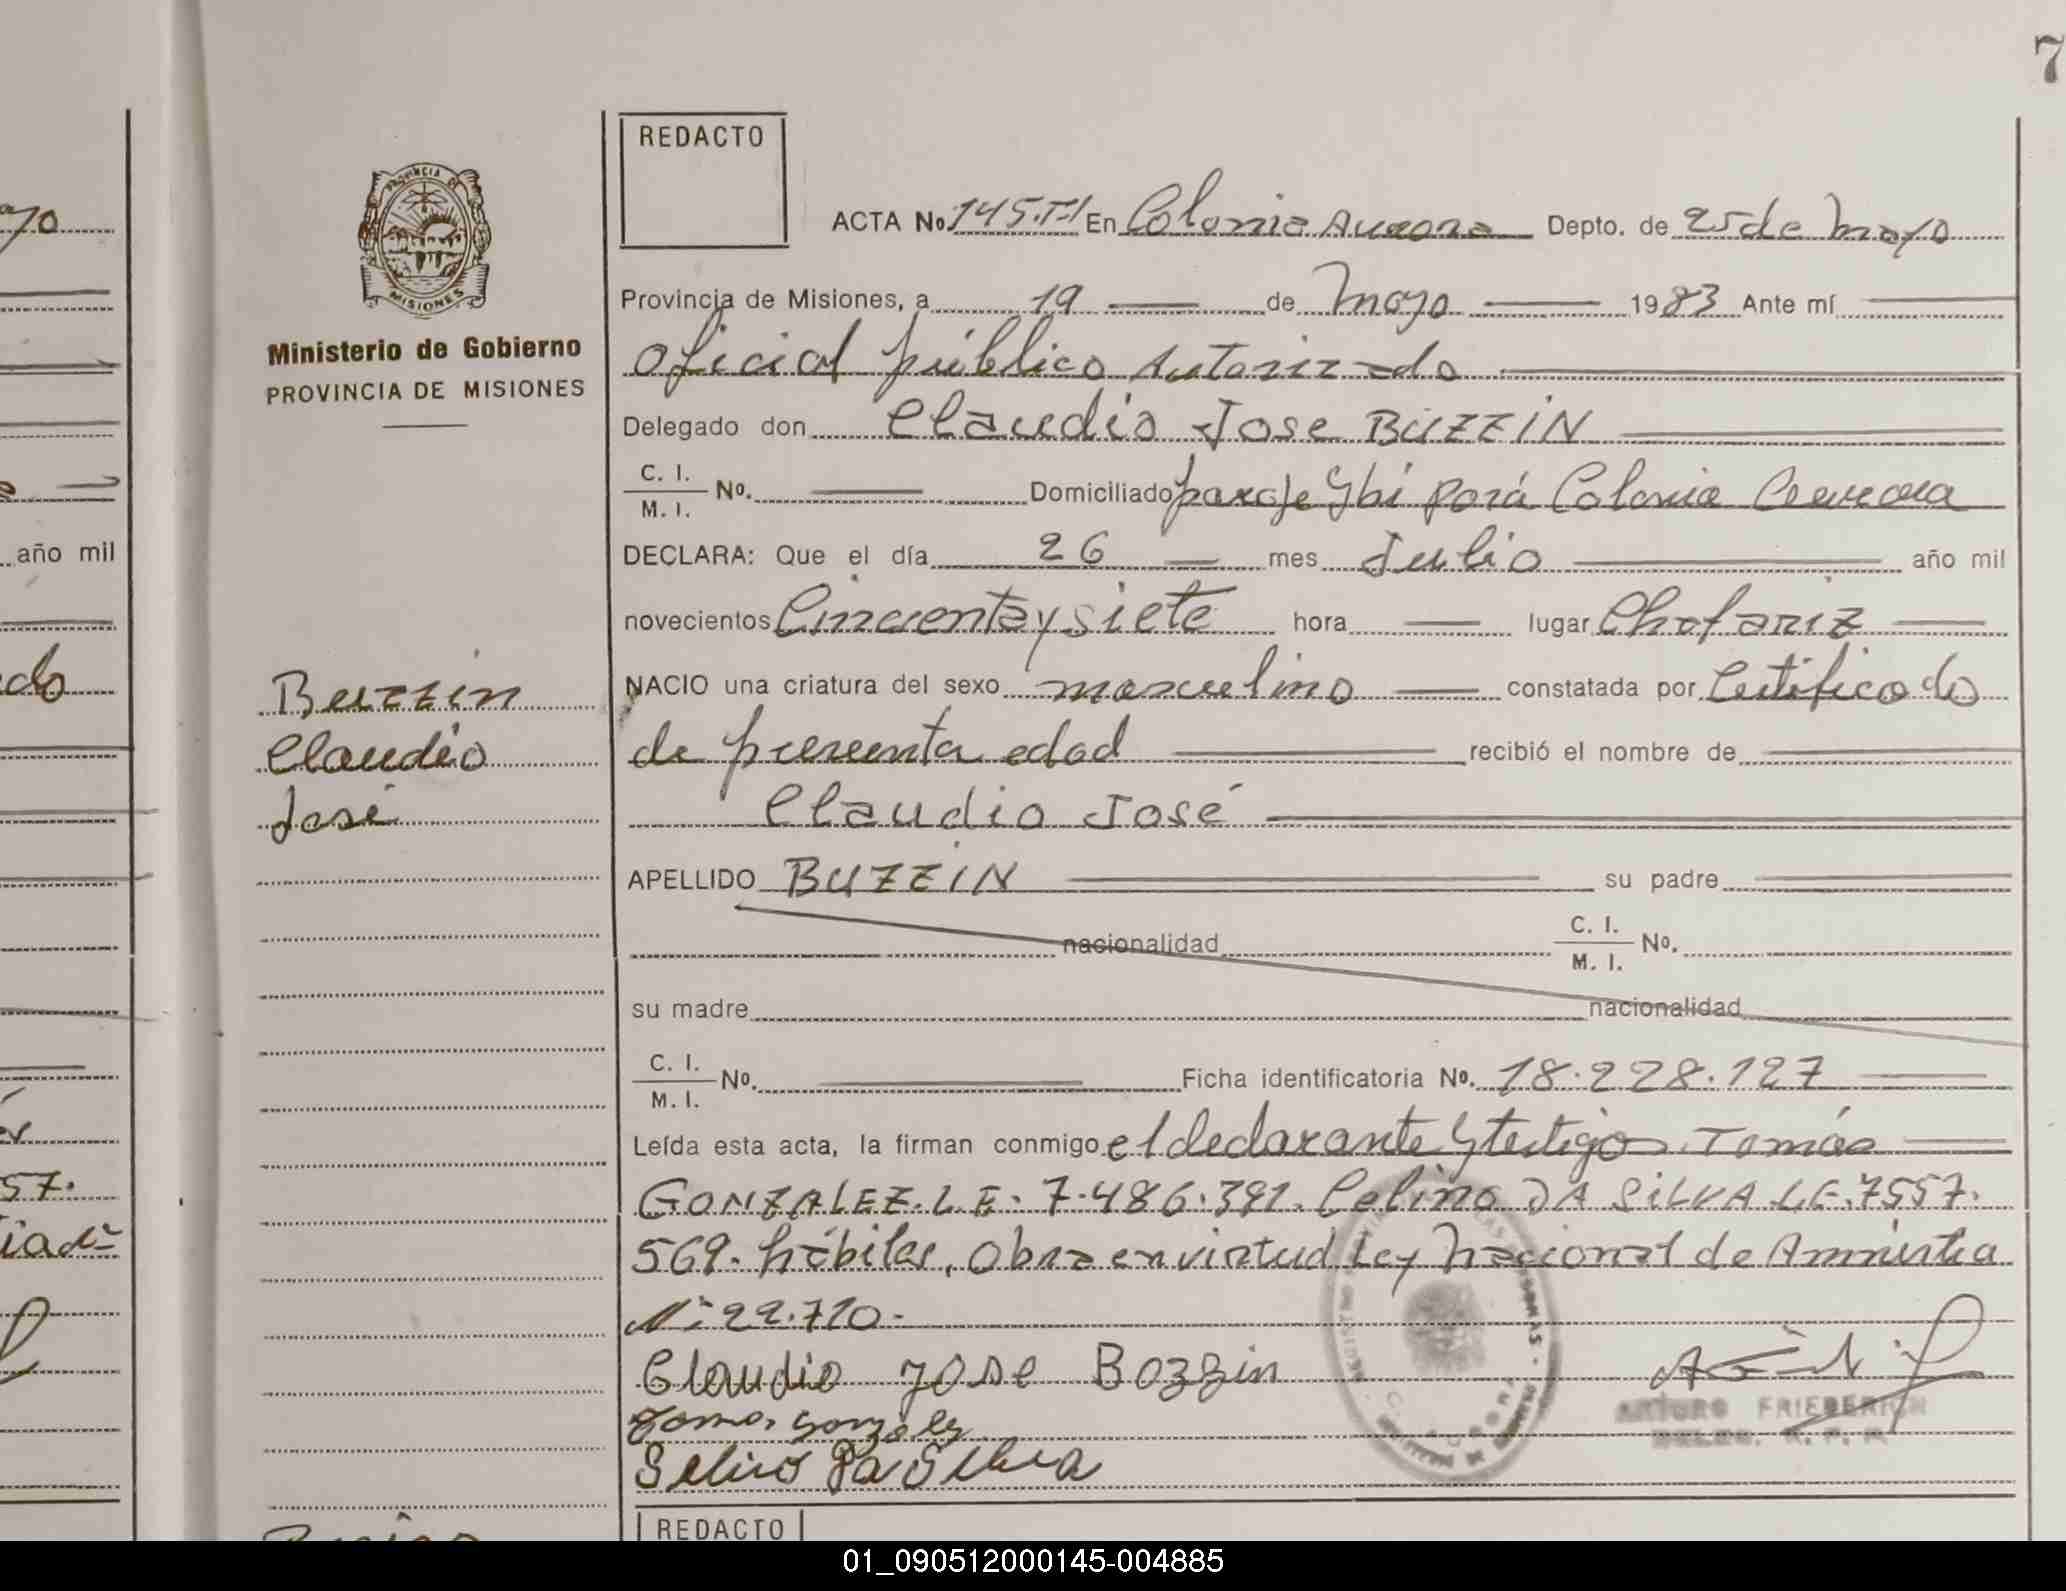 7
REDACTO
ACTA No. 145.T-1 En Colonia Aurora Depto. de 25 de Mayo
PROVINCIA DE
MISIONES
Provincia de Misiones, a 19 de Mayo 1983 Ante mí
Ministerio de Gobierno
PROVINCIA DE MISIONES
Oficial público Autorizado
Delegado don Claudio Jose BUZZIN
C. I.
M. I. No. Domiciliado paraje Ybi Porá Colonia Aurora
DECLARA: Que el día 26 mes Julio año mil
novecientos Cincuenta y siete hora lugar Chafariz
NACIO una criatura del sexo masculino constatada por Certificado
de presunta edad recibió el nombre de
Claudio José
Buzzin
Claudio
José
APELLIDO BUZZIN su padre
nacionalidad C. I.
M. I. No.
su madre nacionalidad
C. I.
M. I. No. Ficha identificatoria No. 18.228.127
Leída esta acta, la firman conmigo el declarante y testigos Tomás
GONZALEZ. L.E. 7.486.391. Celino DA SILVA L.E. 7557.
569. hábiles. Obra en virtud Ley Nacional de Amnistia
N° 22.710.-
Claudio Jose Bozzin
Tomas Gonzalez
Selino Da Silva
ARTURO FRIEDERICH
REDACTO
año mil
57.
01_090512000145-004885